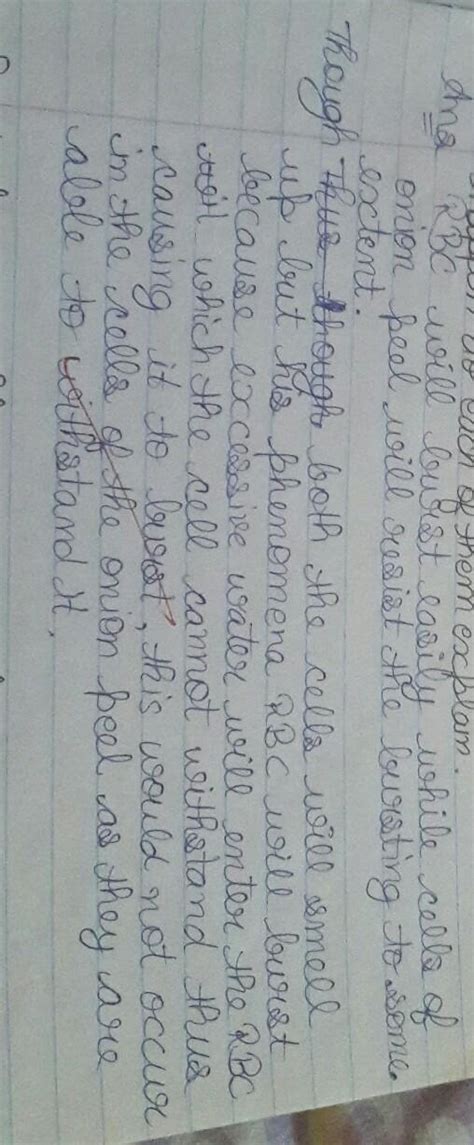 them explain.
Ans RBC will burst easily while cells of
onion peel will resist the bursting to some
extent.
Though thus though both the cells will smell
up but his phenomena RBC will burst
because excessive water will enter the RBC
which the cell cannot withstand thus
causing it to burst, this would not occur
in the cells of the onion peel as they are
able to withstand it.